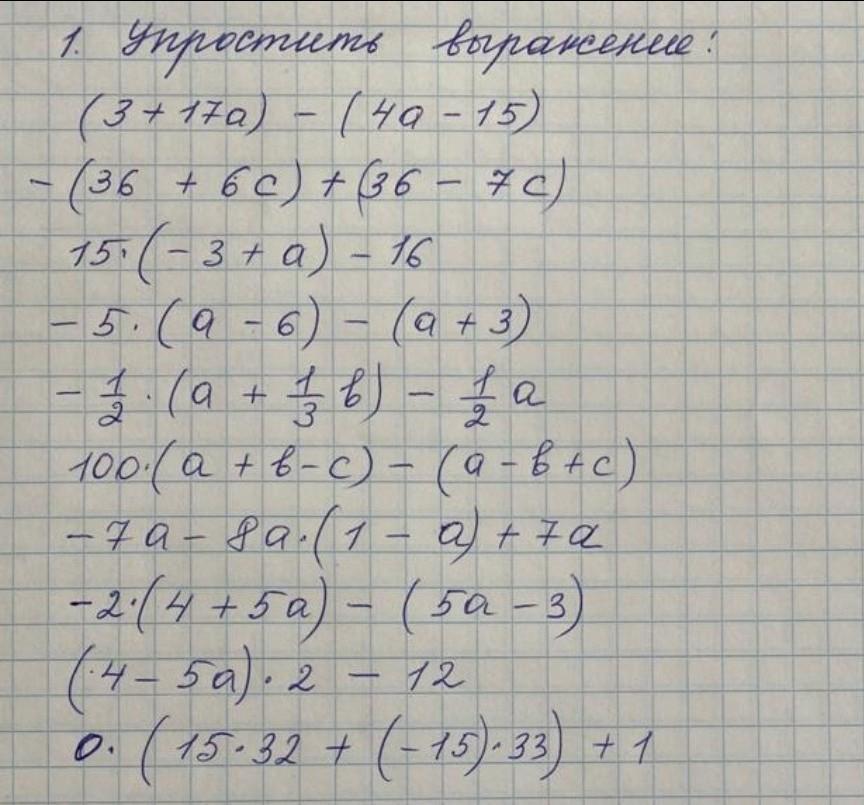 1. Упростить выражение:
(3 + 17a) - (4a - 15)
-(36 + 6c) + (36 - 7c)
15·(-3 + a) - 16
-5·(a - 6) - (a + 3)
-1/2·(a + 1/3 b) - 1/2 a
100·(a + b - c) - (a - b + c)
-7a - 8a·(1 - a) + 7a
-2·(4 + 5a) - (5a - 3)
(4 - 5a)·2 - 12
0·(15·32 + (-15)·33) + 1